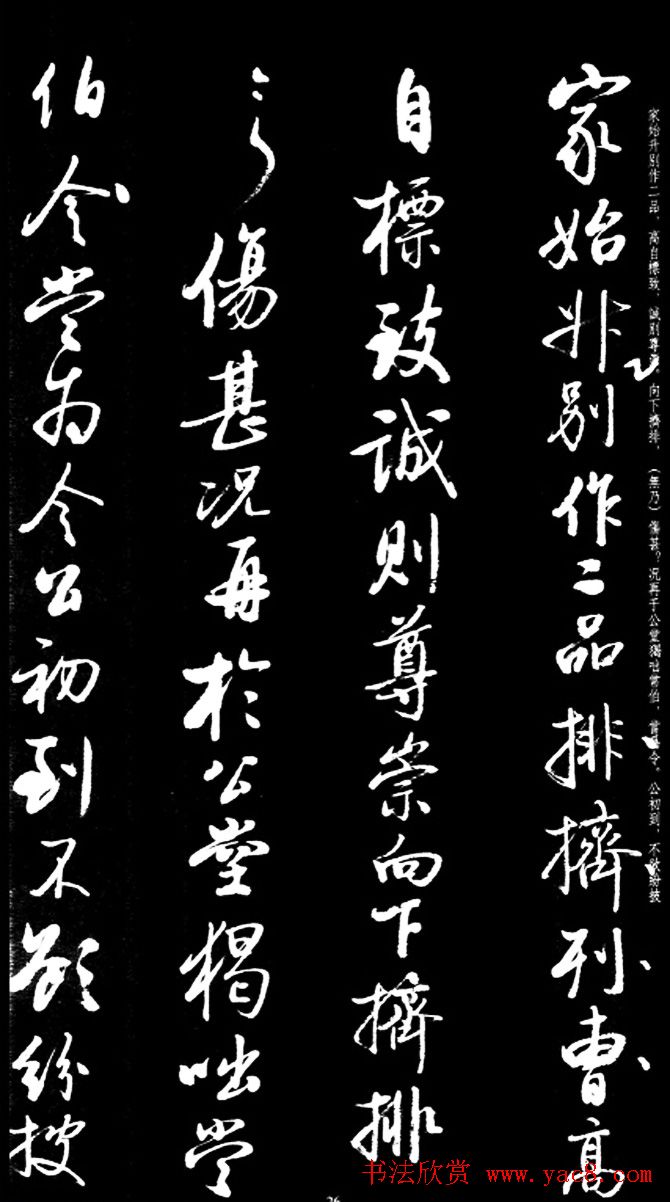 家始升別作二品排擠刊曹高
自標致誠則尊崇向下擠排
傷甚況再於公堂猲咄常
伯令當為令公初到不欲紛披
家始升別作二品，高自標致，誠則尊 向下擠排，（無乃）傷甚？況再于公堂獨咄常伯 令，公初到，不欲紛披
书法欣赏 www.yac8.com
26